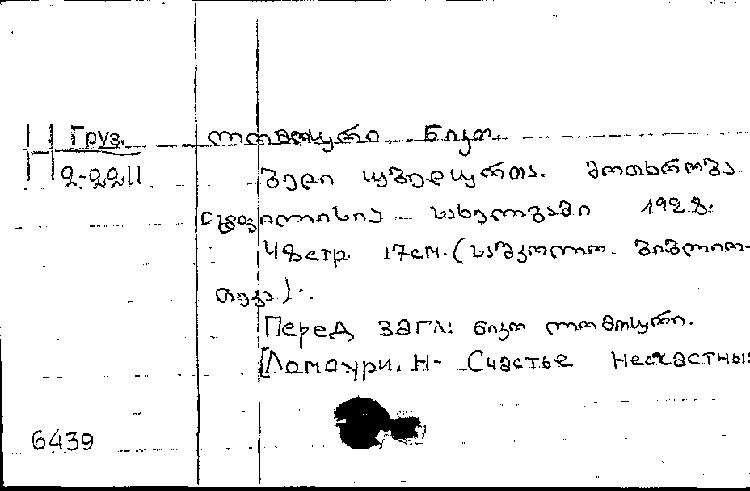 Н Груз. ლომოური ნიკო
2-2211 ბედი უბედურთა. მოთხრობა
ტფილისი სახელგამი 1928.
48 стр. 17см. (სამკოლო. ბიბლიო-
თეკა).
Перед загл: ნიკო ლომოური.
[Ломаури, Н- Счастье несчастных
6439